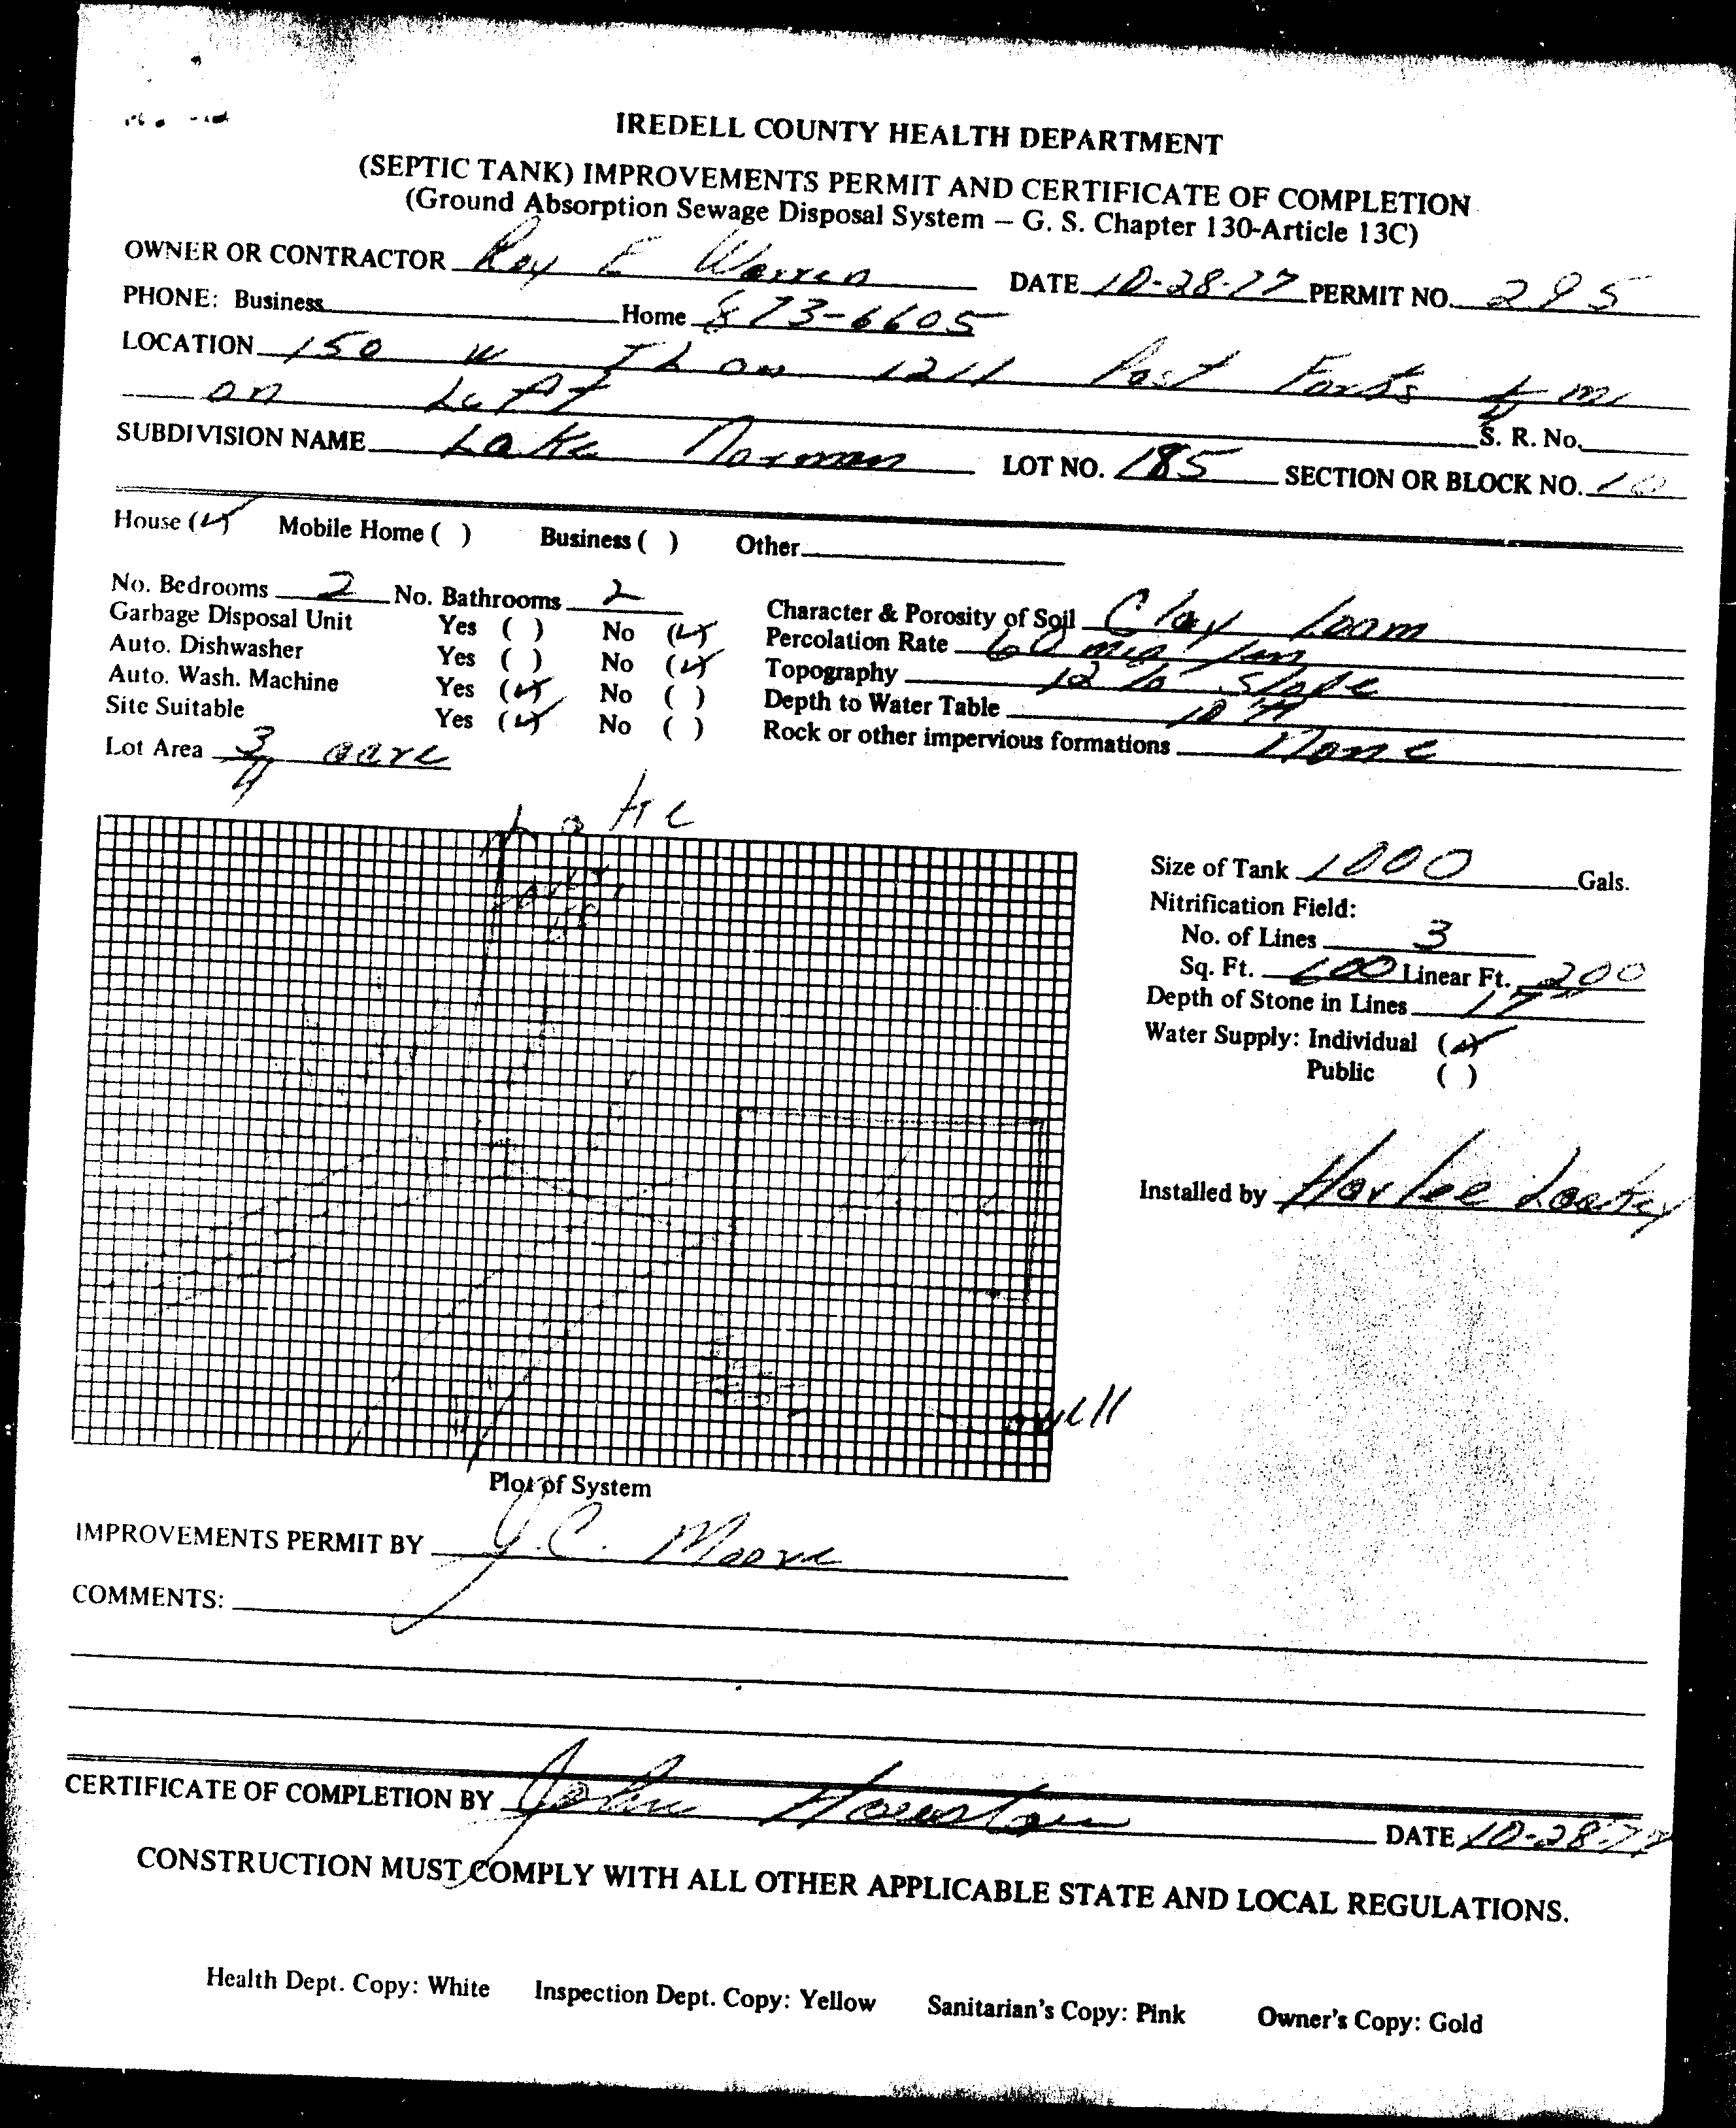 IREDELL COUNTY HEALTH DEPARTMENT
(SEPTIC TANK) IMPROVEMENTS PERMIT AND CERTIFICATE OF COMPLETION
(Ground Absorption Sewage Disposal System – G. S. Chapter 130-Article 13C)
OWNER OR CONTRACTOR Roy E Warren DATE 10-28-77 PERMIT NO. 295
PHONE: Business Home 873-6605
LOCATION 150 W TL on 1211 Past Forks mi
on Left S. R. No.
SUBDIVISION NAME Lake Norman LOT NO. 185 SECTION OR BLOCK NO. 10
House (✓) Mobile Home ( ) Business ( ) Other
No. Bedrooms 2 No. Bathrooms 2 Character & Porosity of Soil Clay Loam
Garbage Disposal Unit Yes ( ) No (✓) Percolation Rate 60 min/in
Auto. Dishwasher Yes ( ) No (✓) Topography 12 % slope
Auto. Wash. Machine Yes (✓) No ( ) Depth to Water Table 10 ft
Site Suitable Yes (✓) No ( ) Rock or other impervious formations None
Lot Area 3/4 acre
Lake
Size of Tank 1000 Gals.
Nitrification Field:
No. of Lines 3
Sq. Ft. 600 Linear Ft. 200
Depth of Stone in Lines
Water Supply: Individual (✓)
Public ( )
Installed by Harlee
well
Plot of System
IMPROVEMENTS PERMIT BY J.C. Moore
COMMENTS:
CERTIFICATE OF COMPLETION BY John DATE 10-28-77
CONSTRUCTION MUST COMPLY WITH ALL OTHER APPLICABLE STATE AND LOCAL REGULATIONS.
Health Dept. Copy: White Inspection Dept. Copy: Yellow Sanitarian's Copy: Pink Owner's Copy: Gold